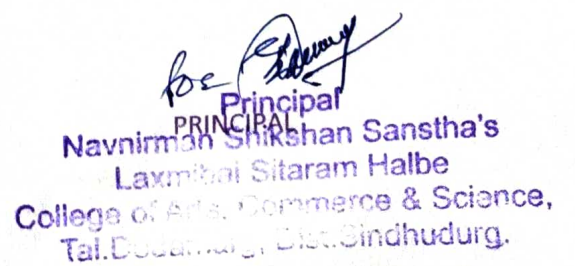 For
Principal
PRINCIPAL
Navnirman Shikshan Sanstha's
Laxmibai Sitaram Halbe
College of Arts, Commerce & Science,
Tal.Dodamarg, Dist.Sindhudurg.